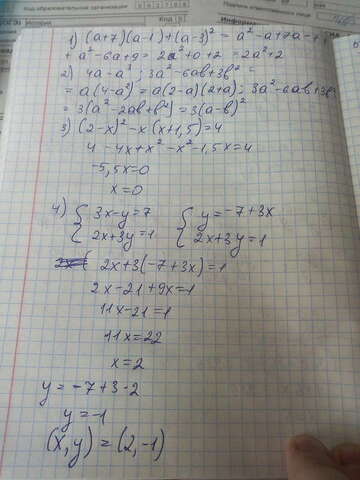 1) (a+7)(a-1)+(a-3)² = a²-a+7a-7+
+a²-6a+9=2a²+0+2=2a²+2
2) 4a-a³; 3a²-6ab+3b²=
=a(4-a²)=a(2-a)(2+a); 3a²-6ab+3b²
=3(a²-2ab+b²)=3(a-b)²
3) (2-x)²-x(x+1,5)=4
4-4x+x²-x²-1,5x=4
-5,5x=0
x=0
4) { 3x-y=7 { y=-7+3x
{ 2x+3y=1 { 2x+3y=1
2x+3(-7+3x)=1
2x-21+9x=1
11x-21=1
11x=22
x=2
y=-7+3·2
y=-1
(x,y)=(2,-1)